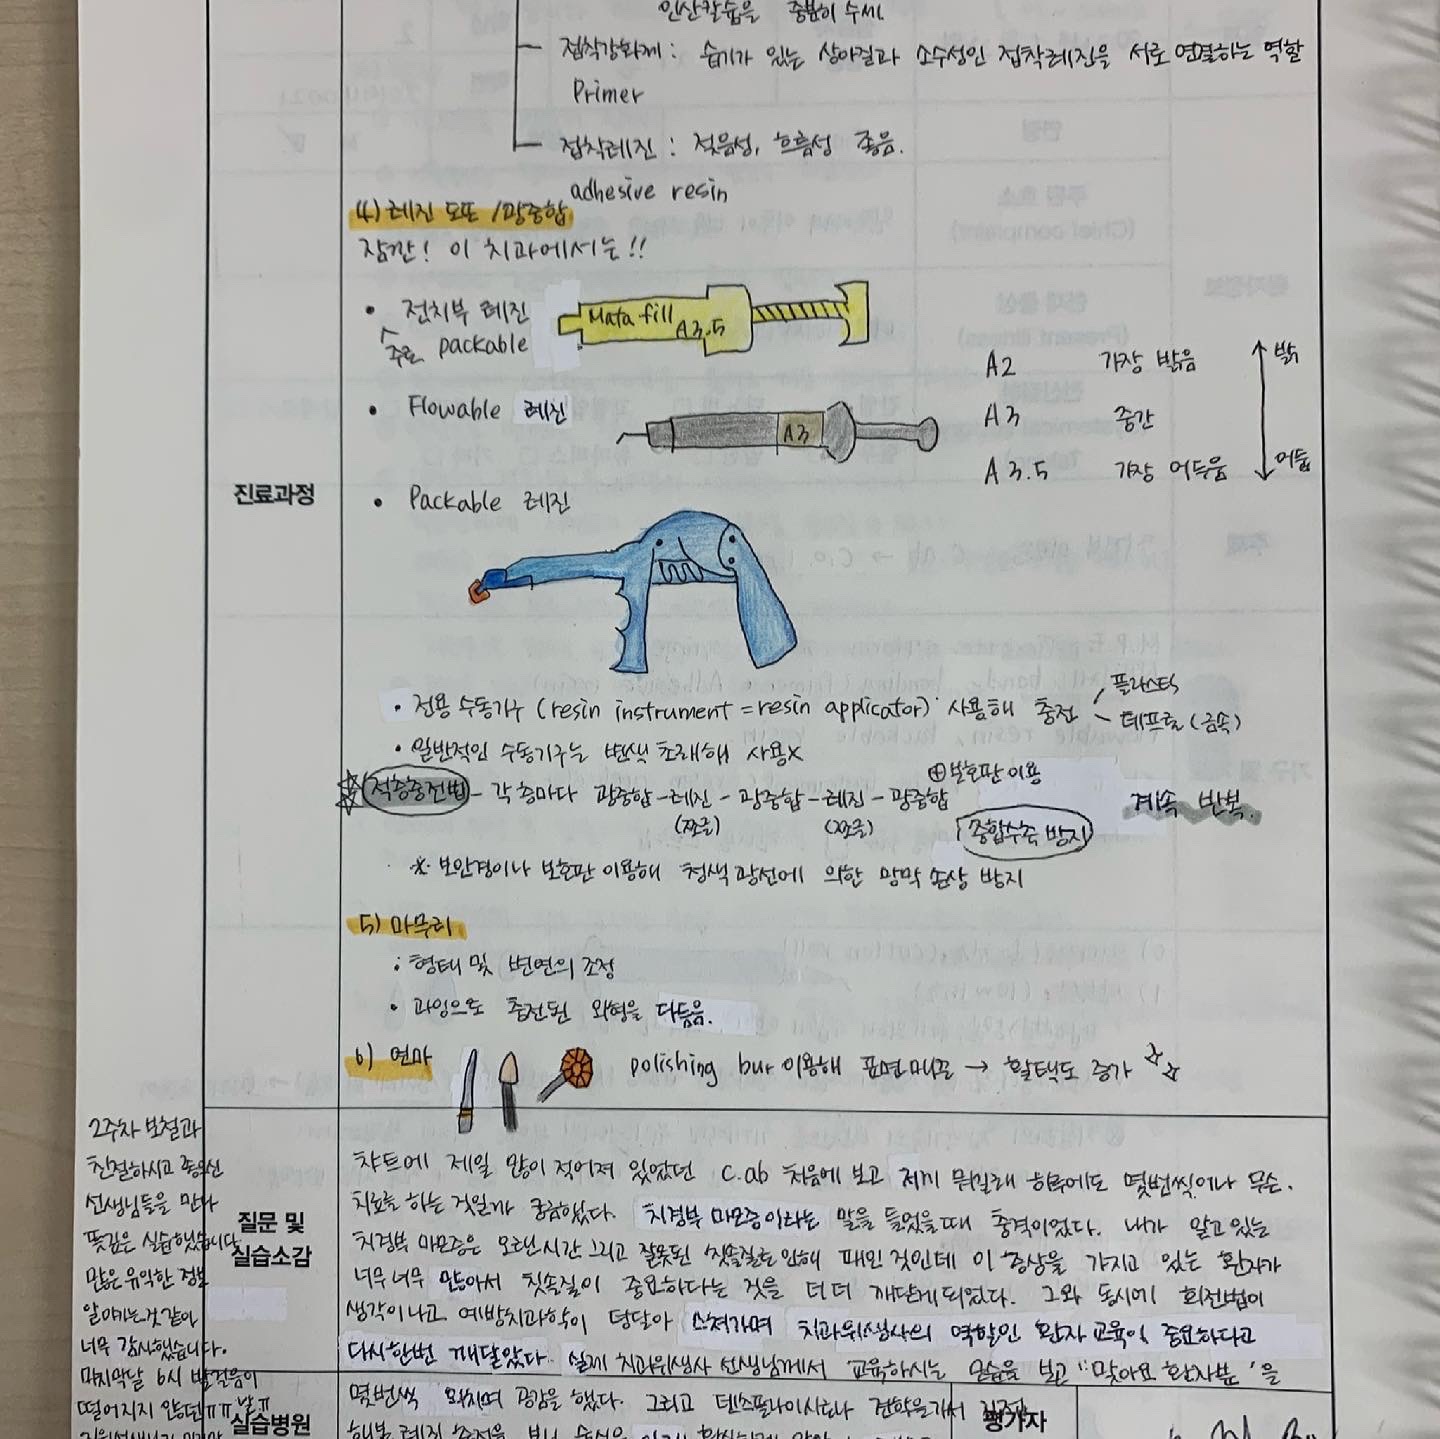 인산칼슘을 충분히 수세
접착강화제 : 습기가 있는 상아질과 소수성인 접착레진을 서로 연결하는 역할
Primer
접착레진 : 젖음성, 흐름성 좋음.
adhesive resin
4) 레진 도포 / 광중합
잠깐! 이 치과에서는!!
• 전치부 레진
주로 packable
Mata fill A3.5
A2 가장 밝음
밝
• Flowable 레진
A3
A3 중간
A3.5 가장 어두움
어둡
진료과정
• Packable 레진
• 전용 수동기구 (resin instrument = resin applicator) 사용해 충전
플라스틱
테프론 (금속)
• 일반적인 수동기구는 변색 초래해 사용x
⊕보호판 이용
☆ 적층충전법 - 각 층마다 광중합 - 레진 - 광중합 - 레진 - 광중합 계속 반복.
(쪼글) (쪼글)
중합수축 방지
※ 보안경이나 보호판 이용해 청색광선에 의한 망막 손상 방지
5) 마무리
• 형태 및 변연의 조정
• 과잉으로 충전된 외형을 다듬음.
6) 연마
polishing bur 이용해 표면 매끈 → 활택도 증가 ☆☆
2주차 보철과
친절하시고 좋으신
선생님들을 만나
뜻깊은 실습했습니다
많은 유익한 정보
알아가는것 같아
너무 감사했습니다.
마지막날 6시 발걸음이
떨어지지 않던
질문 및
실습소감
챠트에 제일 많이 적어져 있었던 C.ab 처음에 보고 저게 뭐길래 하루에도 몇번씩이나 무슨.
치료를 하는 것일까 궁금했다. 치경부 마모증이라는 말을 들었을때 충격이었다. 내가 알고있는
치경부 마모증은 오랜시간 그리고 잘못된 칫솔질로 인해 패인 것인데 이 증상을 가지고 있는 환자가
너무너무 많아서 칫솔질이 중요하다는 것을 더 더 깨닫게되었다. 그와 동시에 회전법이
생각이나고 예방치과학이 덩달아 스쳐가며 치과위생사의 역할인 환자 교육이 중요하다고
다시한번 깨달았다. 실제 치과위생사 선생님께서 교육하시는 모습을 보고 "맞아요 환자분"을
몇번씩 외치며 공감을 했다. 그리고
실습병원
평가자